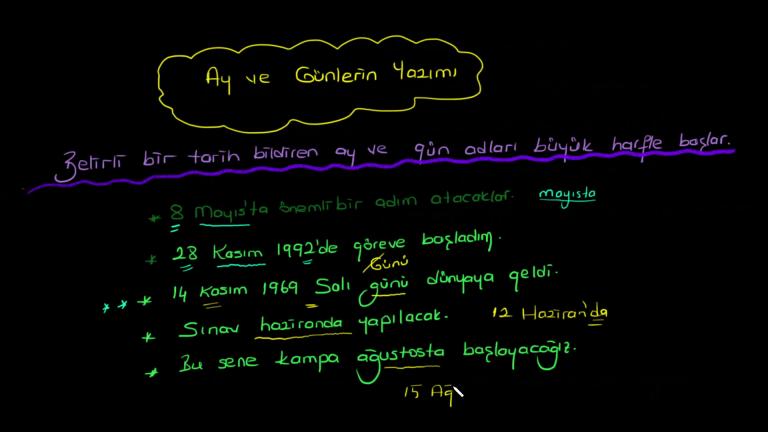 Ay ve Günlerin Yazımı
Belirli bir tarih bildiren ay ve gün adları büyük harfle başlar.
* 8 Mayıs'ta önemli bir adım atacaklar. mayısta
* 28 Kasım 1992'de göreve başladım.
Günü
* * * 14 Kasım 1969 Salı günü dünyaya geldi.
* Sınav haziranda yapılacak. 12 Haziran'da
* Bu sene kampa ağustosta başlayacağız.
15 Ağ